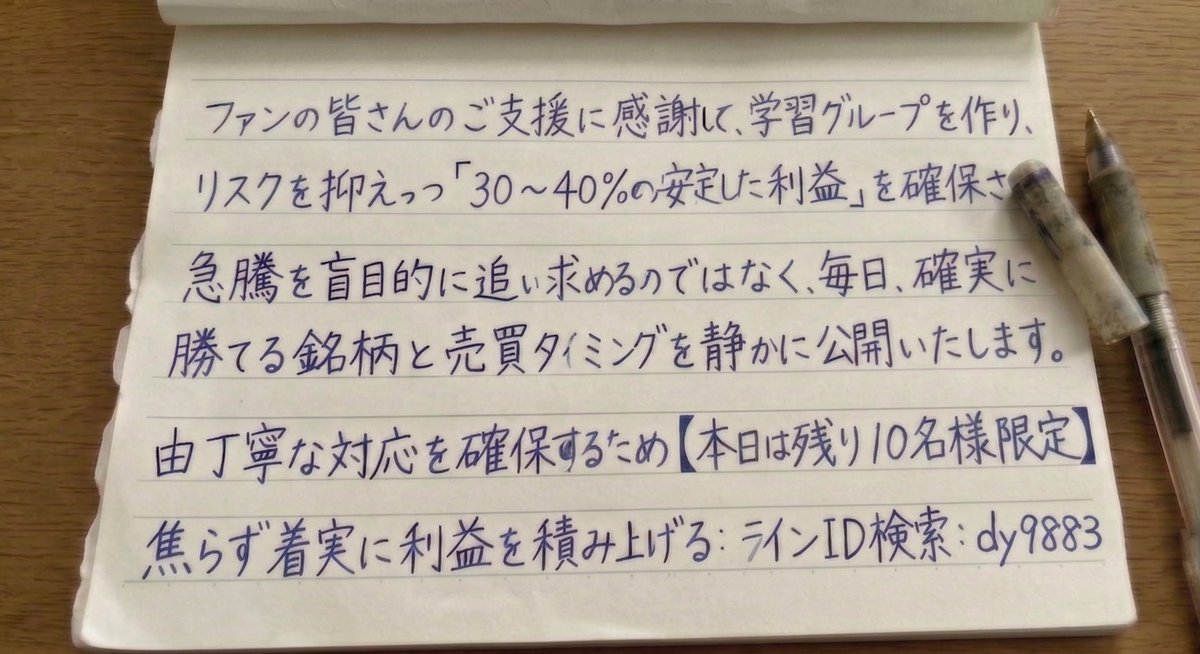 ファンの皆さんのご支援に感謝して、学習グループを作り、
リスクを抑えつつ「30〜40%の安定した利益」を確保さ
急騰を盲目的に追い求めるのではなく、毎日、確実に
勝てる銘柄と売買タイミングを静かに公開いたします。
由丁寧な対応を確保するため【本日は残り10名様限定】
焦らず着実に利益を積み上げる:ラインID検索:dy9883